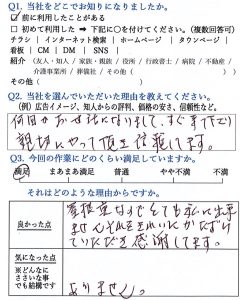 Q1. 当社をどこでお知りになりましたか。
☑ 前に利用したことがある
□ 初めて利用した ➡ 下記に○を付けてください。(複数回答可)
チラシ | インターネット検索 | ホームページ | タウンページ |
看板 | CM | DM | SNS |
紹介 (友人・知人 / 家族・親族 / 役所 / 行政書士 / 病院 / 不動産 /
介護事業所 / 葬儀社 / その他( )
その他( )
Q2. 当社を選んでいただいた理由を教えてください。
(例) 広告イメージ、知人からの評判、価格の安さ、信頼性など。
何回かお世話になりまして、すぐ来て下さり
親切にやって頂き信頼してます。
Q3. 今回の作業にどのくらい満足していますか。
満足 まあまあ満足 普通 やや不満 不満
それはどのような理由からですか。
良かった点
ません それをきれいにかたづけて
いただき感謝してます。
気になった点
※どんなに
ささいな事
でも結構です
ありません。